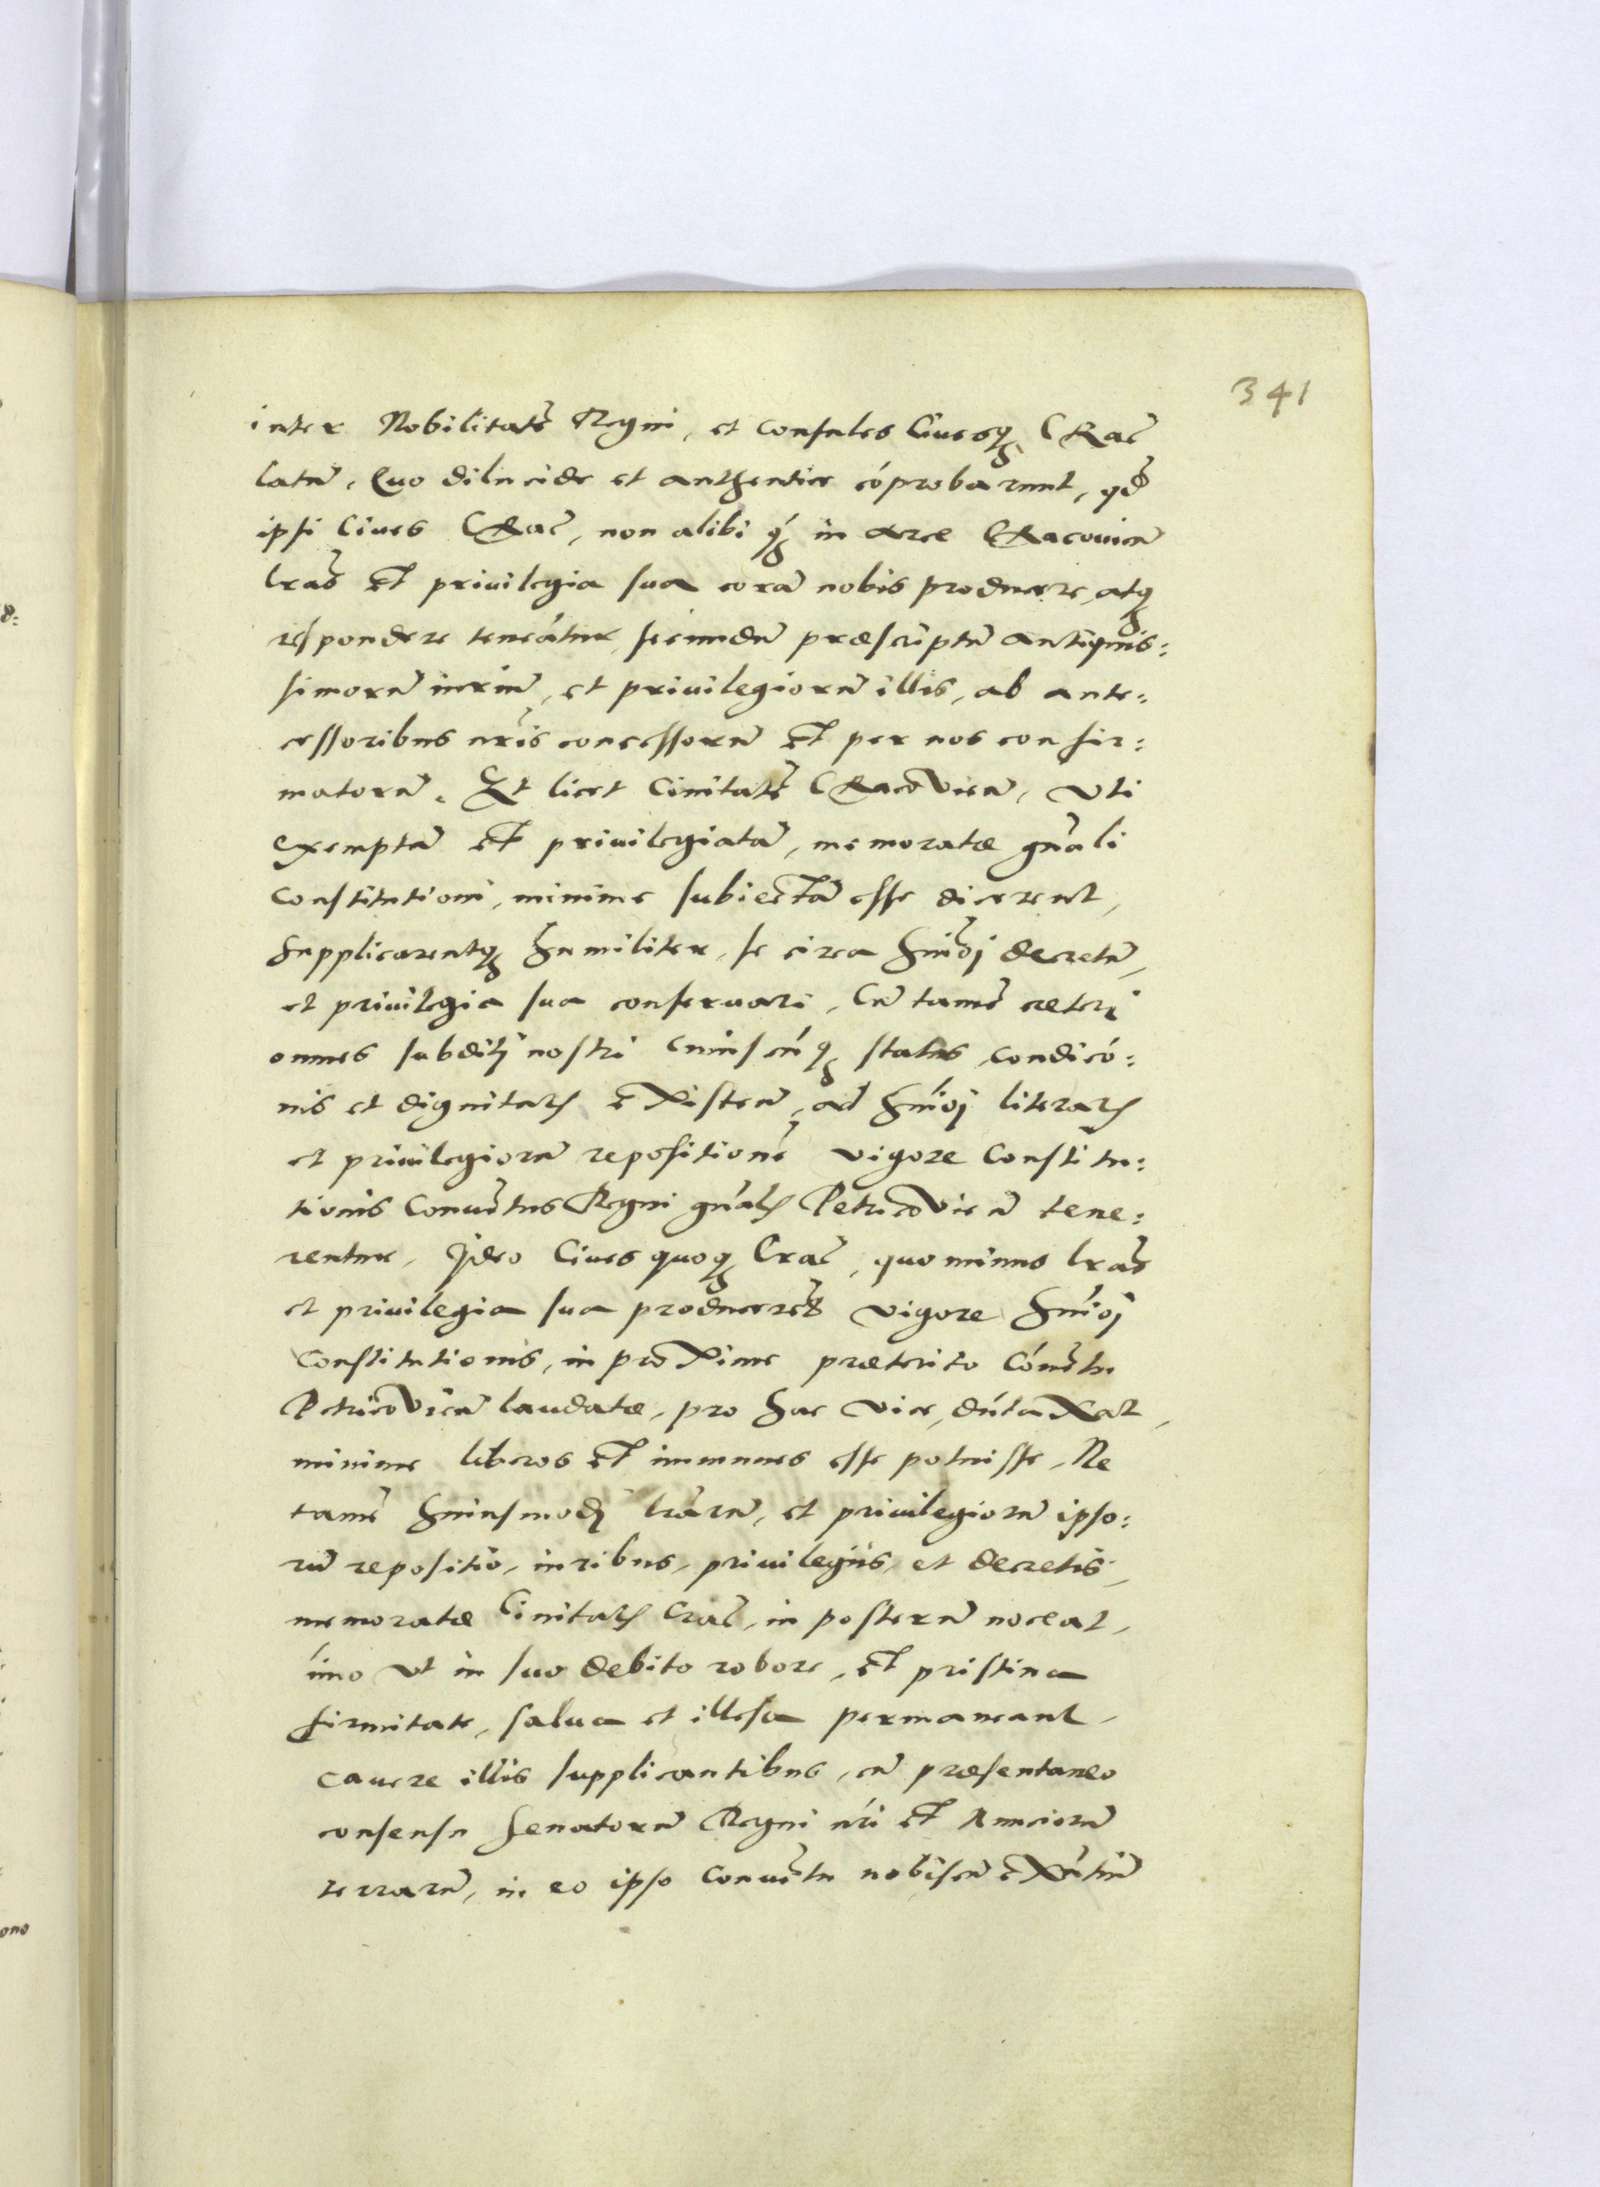 341
inter Nobilitatē Regni, et Consules Ciuesq̨ CRac̄
latū, Quo dilucide et authentice cóprobarunt, qd̄
ipsi Ciues CRac̄, non alibi q̨́ in arce CRacouien̄
lrās et privilegia sua corā nobis producere, atq̨
respondere teneātur, secundū præscriptū antiquis:
simorū iuriū, et privilegiorū illis, ab ante:
cessoribus nrīs concessorū et per nos confir:
matorū. Et licet Ciuitatē CRacovien̄, vti
exemptā et privilegiatā, memoratæ gnāli
Constitutioni, minime subiectā esse dicerent,
supplicarentq̨ humiliter, se circa hmōi decretū,
et privilegia sua conseruari, Cū tamē cæteri
omnes subditj nostri cuiuscūq̨ status, condició:
nis et dignitatis existen̄, ad hmōi literarū
et privilegiorū repositionē vigore Constitu:
tionis Conuētus Regni gnālis Petricovien̄ tene:
rentur, Ideo Ciues quoq̨ Crac̄, quo minus lrās
et privilegia sua producerēt vigore hmōi
Constitutionis, in proxime præterito Cónētu
Petricovien̄ laudatæ, pro hac vice, dūtaxat,
minime liberos et immunes esse potuisse, Ne
tamē huiusmodj lrārū, et privilegiorū ipso:
rū repositio, iuribus, privilegiis, et decretis,
memoratæ Ciuitatis Crac̄, in posterum noceat,
imo vt in suo debito robore, et pristina
firmitate, salua et illesa permaneant,
cauere illis supplicantibus, cū præsentaneo
consensu senatorū Regni nrī et Nunciorū
terrarū, in eo ipso Conuētu nobiscū exn̄tiū